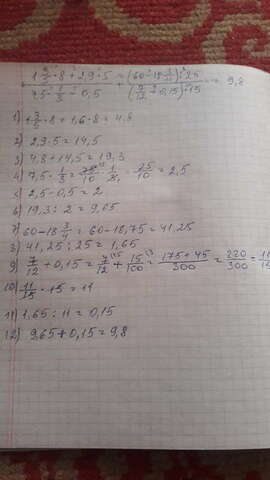 1 3/5 · 8 + 2,9 · 5 / 7,5 · 1/3 - 0,5 + (60 - 18 3/4) : 25 / (7/12 + 0,15) · 15 = 9,8
1) 3/5 · 8 + 1,6 · 8 = 4,8
2) 2,9 · 5 = 14,5
3) 4,8 + 14,5 = 19,3
4) 7,5 · 1/3 = 75/10 · 1/3 = 25/10 = 2,5
2,5 - 0,5 = 2
6) 19,3 : 2 = 9,65
7) 60 - 18 3/4 = 60 - 18,75 = 41,25
41,25 : 25 = 1,65
9) 7/12 + 0,15 = 7/12 + 15/100 = 175 + 45/300 = 220/300 = 11/15
10) 11/15 · 15 = 11
11) 1,65 : 11 = 0,15
12) 9,65 + 0,15 = 9,8